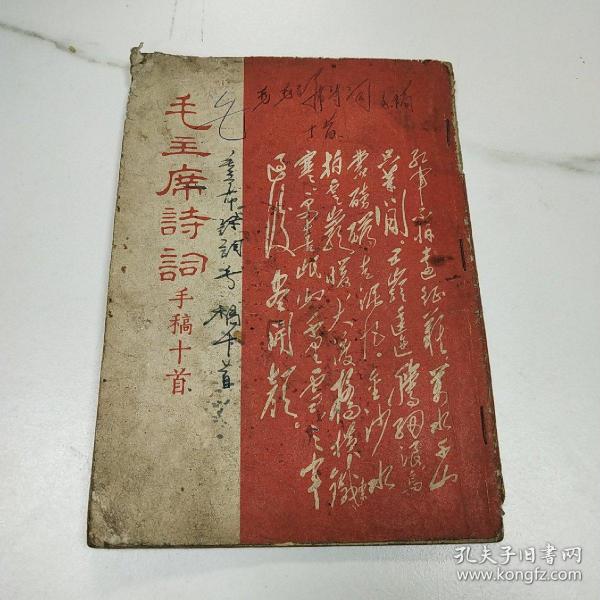 毛主席詩詞
手稿十首
毛
毛主席诗词手稿十首
十首
紅軍不怕遠征難萬水千山
只等閒。五嶺逶迤騰細浪烏
蒙磅礴走泥丸。金沙水
拍雲崖暖大渡橋橫鐵索
寒。更喜岷山千里雪三軍
過後盡開顏。
孔夫子旧书网
www.kongfz.com